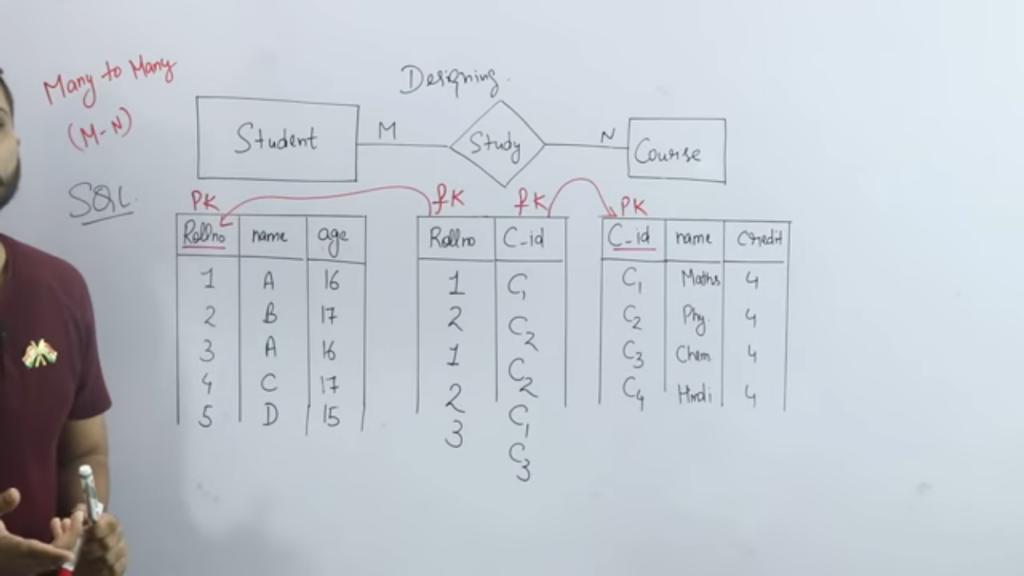 Many to Many
(M-N)
SQL
Designing.
Student M Study N Course
PK fK fK PK
Rollno name age
1 A 16
2 B 17
3 A 16
4 C 17
5 D 15
Rollno C_id
1 C1
2 C2
1 C2
2 C1
3 C3
C_id name Credit
C1 Maths 4
C2 Phy. 4
C3 Chem 4
C4 Hindi 4